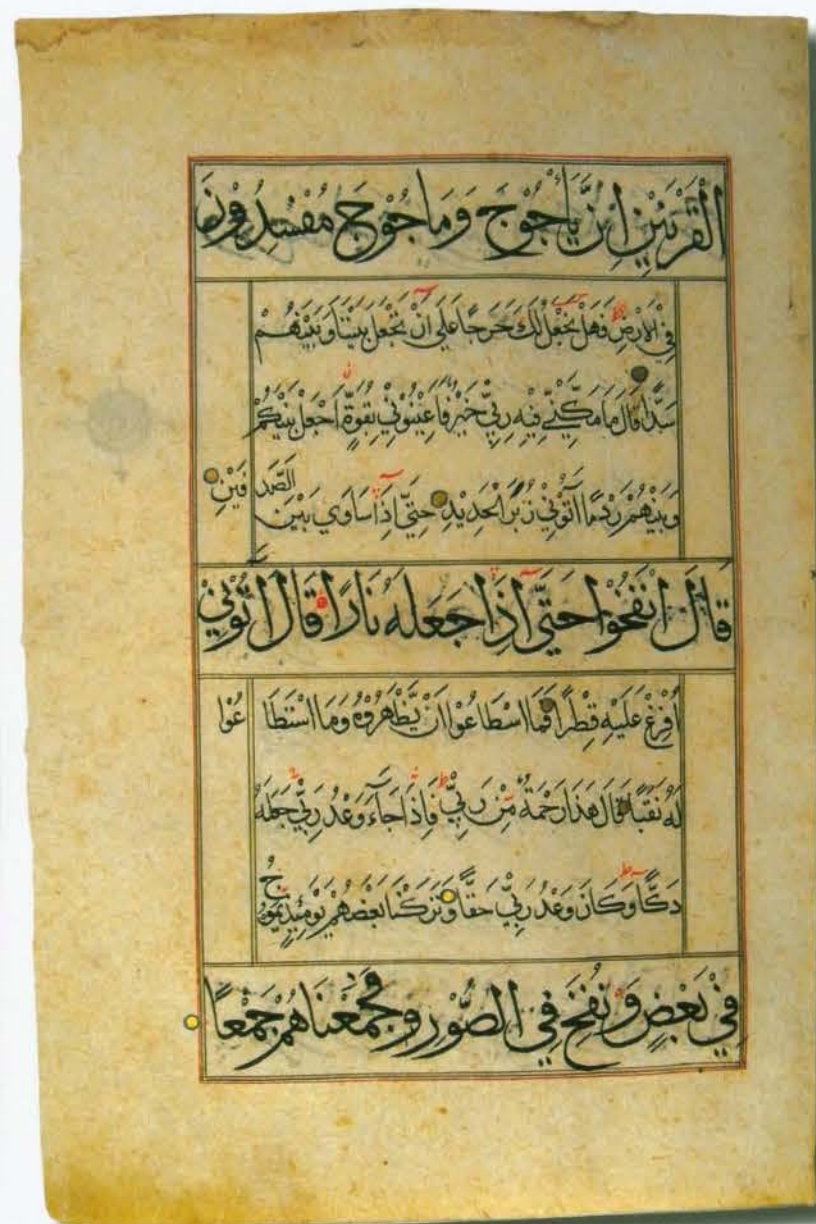 الْقَرْنَيْنِ اِنَّ يَأْجُوْجَ وَمَاجُوْجَ مُفْسِدُوْنَ
فِي الْاَرْضِ فَهَلْ نَجْعَلُ لَكَ خَرْجًا عَلٰى اَنْ تَجْعَلَ بَيْنَنَا وَبَيْنَهُمْ
سَدًّا قَالَ مَا مَكَّنِّيْ فِيْهِ رَبِّيْ خَيْرٌ فَاَعِيْنُوْنِيْ بِقُوَّةٍ اَجْعَلْ بَيْنَكُمْ
وَبَيْنَهُمْ رَدْمًا اٰتُوْنِيْ زُبَرَ الْحَدِيْدِ حَتّٰى اِذَا سَاوٰي بَيْنَ الصَّدَفَيْنِ
قَالَ انْفُخُوْا حَتّٰى اِذَا جَعَلَهُ نَارًا قَالَ اٰتُوْنِيْ
اُفْرِغْ عَلَيْهِ قِطْرًا فَمَا اسْطَاعُوْا اَنْ يَّظْهَرُوْهُ وَمَا اسْتَطَاعُوْا
لَهُ نَقْبًا قَالَ هَذَا رَحْمَةٌ مِّنْ رَبِّيْ فَاِذَا جَآءَ وَعْدُ رَبِّيْ جَعَلَهُ
دَكًّا وَكَانَ وَعْدُ رَبِّيْ حَقًّا وَتَرَكْنَا بَعْضَهُمْ يَوْمَئِذٍ يَّمُوْجُ
فِيْ بَعْضٍ وَنُفِخَ فِي الصُّوْرِ فَجَمَعْنَاهُمْ جَمْعًا